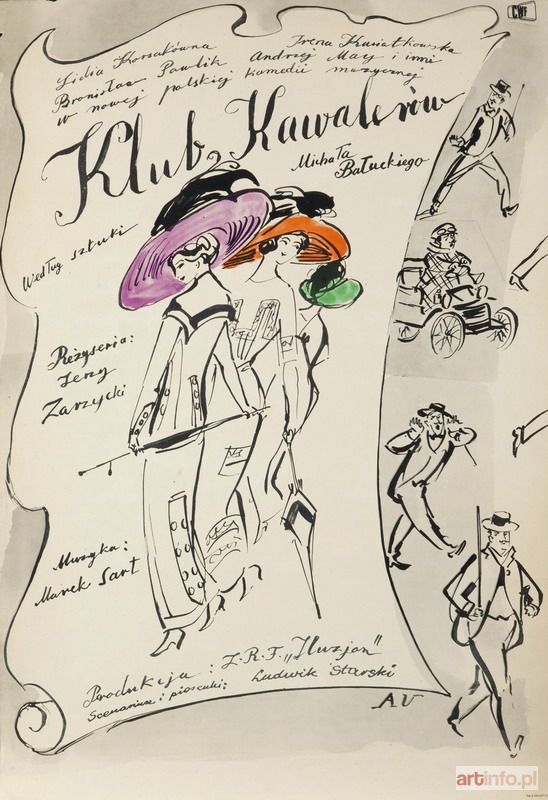 CWF
Lidia Korsakówna
Irena Kwiatkowska
Bronisław Pawlik Andrzej May i inni
w nowej polskiej komedii muzycznej
Klub Kawalerów
Michała
Bałuckiego
Według sztuki
Reżyseria:
Jerzy
Zarzycki
Muzyka:
Marek Sart
Produkcja: Z.R.F. „Iluzjon”
Scenariusz i piosenki: Ludwik Starski
AU
artinfo.pl